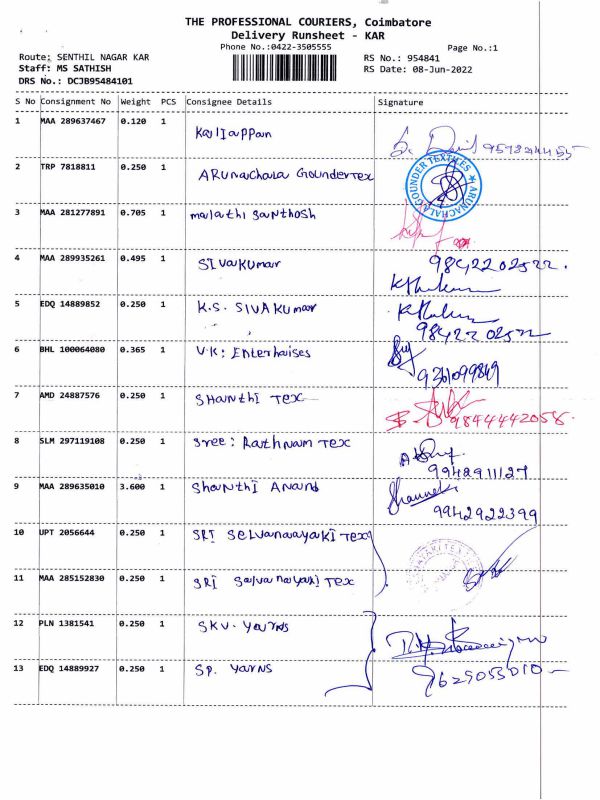 THE PROFESSIONAL COURIERS, Coimbatore
Delivery Runsheet - KAR
Phone No.:0422-3505555
Page No.:1
Route: SENTHIL NAGAR KAR
RS No.: 954841
Staff: MS SATHISH
RS Date: 08-Jun-2022
DRS No.: DCJB95484101
S No Consignment No Weight PCS Consignee Details Signature
1 MAA 289637467 0.120 1 Kaliappan
2 TRP 7818811 0.250 1 ARunachala GounderTex
ARUNACHALA GOUNDER TEXTILES
3 MAA 281277891 0.705 1 malathi santhosh
4 MAA 289935261 0.495 1 SIVakumar 9842202522.
5 EDQ 14889852 0.250 1 K.S. SIVAKUmar
9842202522
6 BHL 100064080 0.365 1 V.K: Enterhaises
9361099849
7 AMD 24887576 0.250 1 SHanthI Tex 9844442058.
8 SLM 297119108 0.250 1 sree: Rathnam Tex
9942911127
9 MAA 289635010 3.600 1 Shanthi Anand
9942922399
10 UPT 2056644 0.250 1 SRI Selvanaayaki Tex
11 MAA 285152830 0.250 1 SRI Salvanayaki Tex
12 PLN 1381541 0.250 1 SKV. Yarns
13 EDQ 14889927 0.250 1 SP. Yarns 9629055010